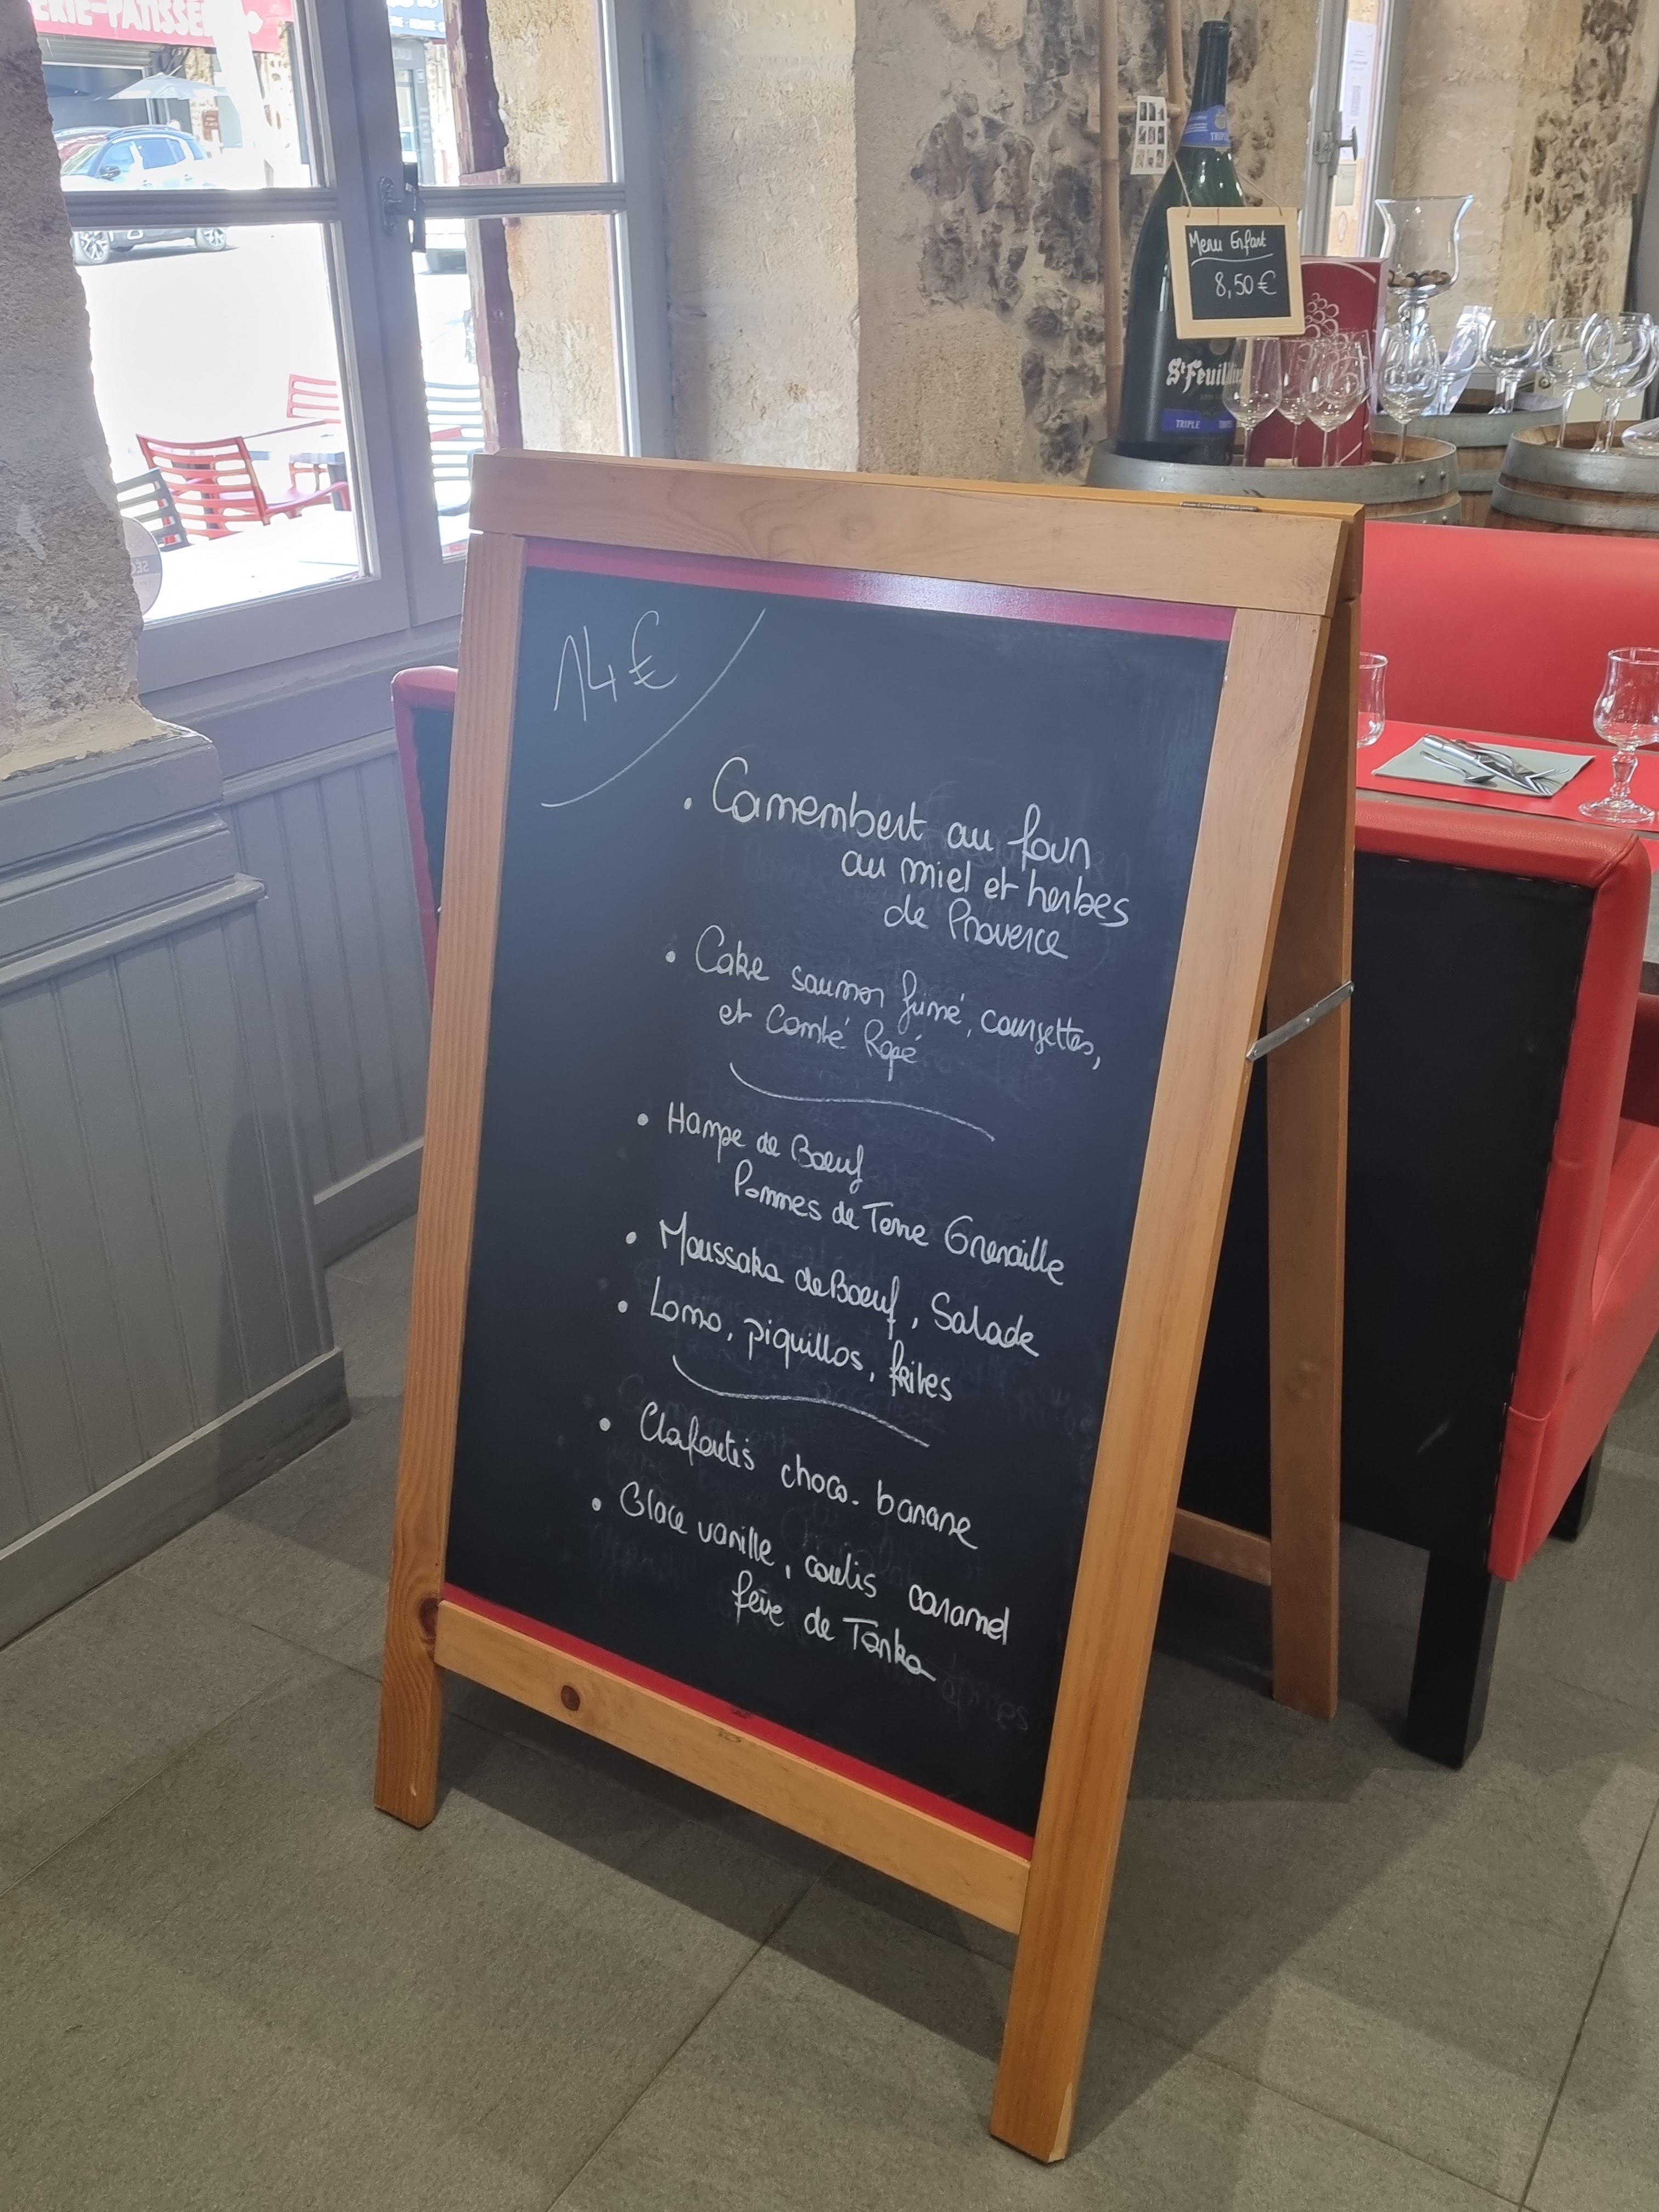 TRIPLE
Menu Enfant
8,50€
St Feuil
TRIPLE
14€
. Camembert au four
au miel et herbes
de Provence
. Cake saumon fumé, courgettes,
et Comté Rapé
. Hampe de Boeuf
Pommes de Terre Grenaille
. Moussaka de Boeuf, Salade
. Lomo, piquillos, frites
. Clafoutis choco-banane
. Glace vanille, coulis caramel
fève de Tonka